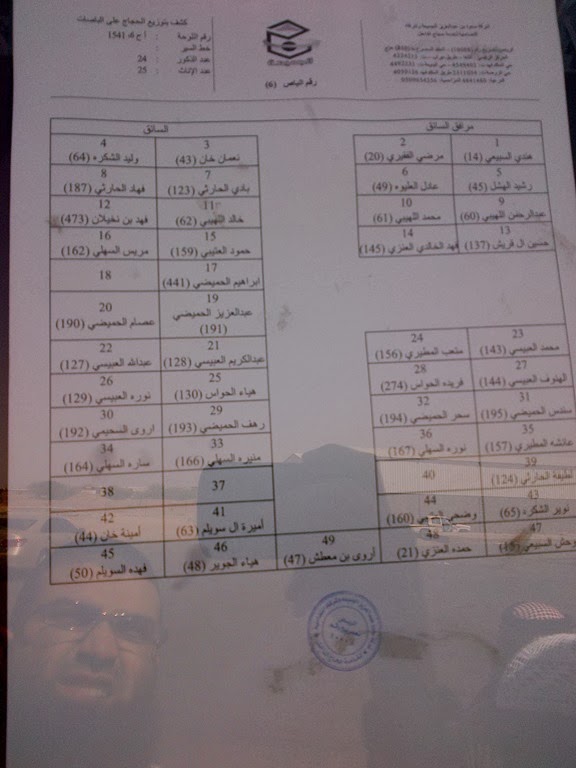 كشف بتوزيع الحجاج على الباصات
رقم اللوحة : أ ح ك 1541
خط السير :
عدد الذكور : 24
عدد الإناث : 25
رقم الباص (6)
مرافق السائق
السائق
1 2 3 4
هندي السبيعي (14) مرضي الفقيري (20) نعمان خان (43) وليد الشكره (64)
5 6 7 8
رشيد الهشل (45) عادل العليوه (49) بادي الحارثي (123) فهاد الحارثي (187)
9 10 11 12
عبدالرحمن اللهيبي (60) محمد اللهيبي (61) خالد اللهيبي (62) فهد بن نخيلان (473)
13 14 15 16
حسين ال قريش (137) فهد الخالدي العنزي (145) حمود العتيبي (159) مريس السهلي (162)
17 18
ابراهيم الحميضي (441)
19 20
عبدالعزيز الحميضي (191) عصام الحميضي (190)
23 24 21 22
محمد العبيسي (143) متعب المطيري (156) عبدالكريم العبيسي (128) عبدالله العبيسي (127)
27 28 25 26
الهنوف العبيسي (144) فريده الحواس (274) هياء الحواس (130) نوره العبيسي (129)
31 32 29 30
سندس الحميضي (195) سحر الحميضي (194) رهف الحميضي (193) اروى السحيمي (192)
35 36 33 34
عائشه المطيري (157) نوره السهلي (167) منيره السهلي (166) ساره السهلي (164)
39 40 37 38
لطيفة الحارثي (124)
43 44 41 42
نوير الشكره (65) وضحى (160) أميرة ال سويلم (63) أمينة خان (44)
47 48 49 46 45
السبيعي حمده العنزي (21) أروى بن معطش (47) هياء الجوير (48) فهده السويلم (50)